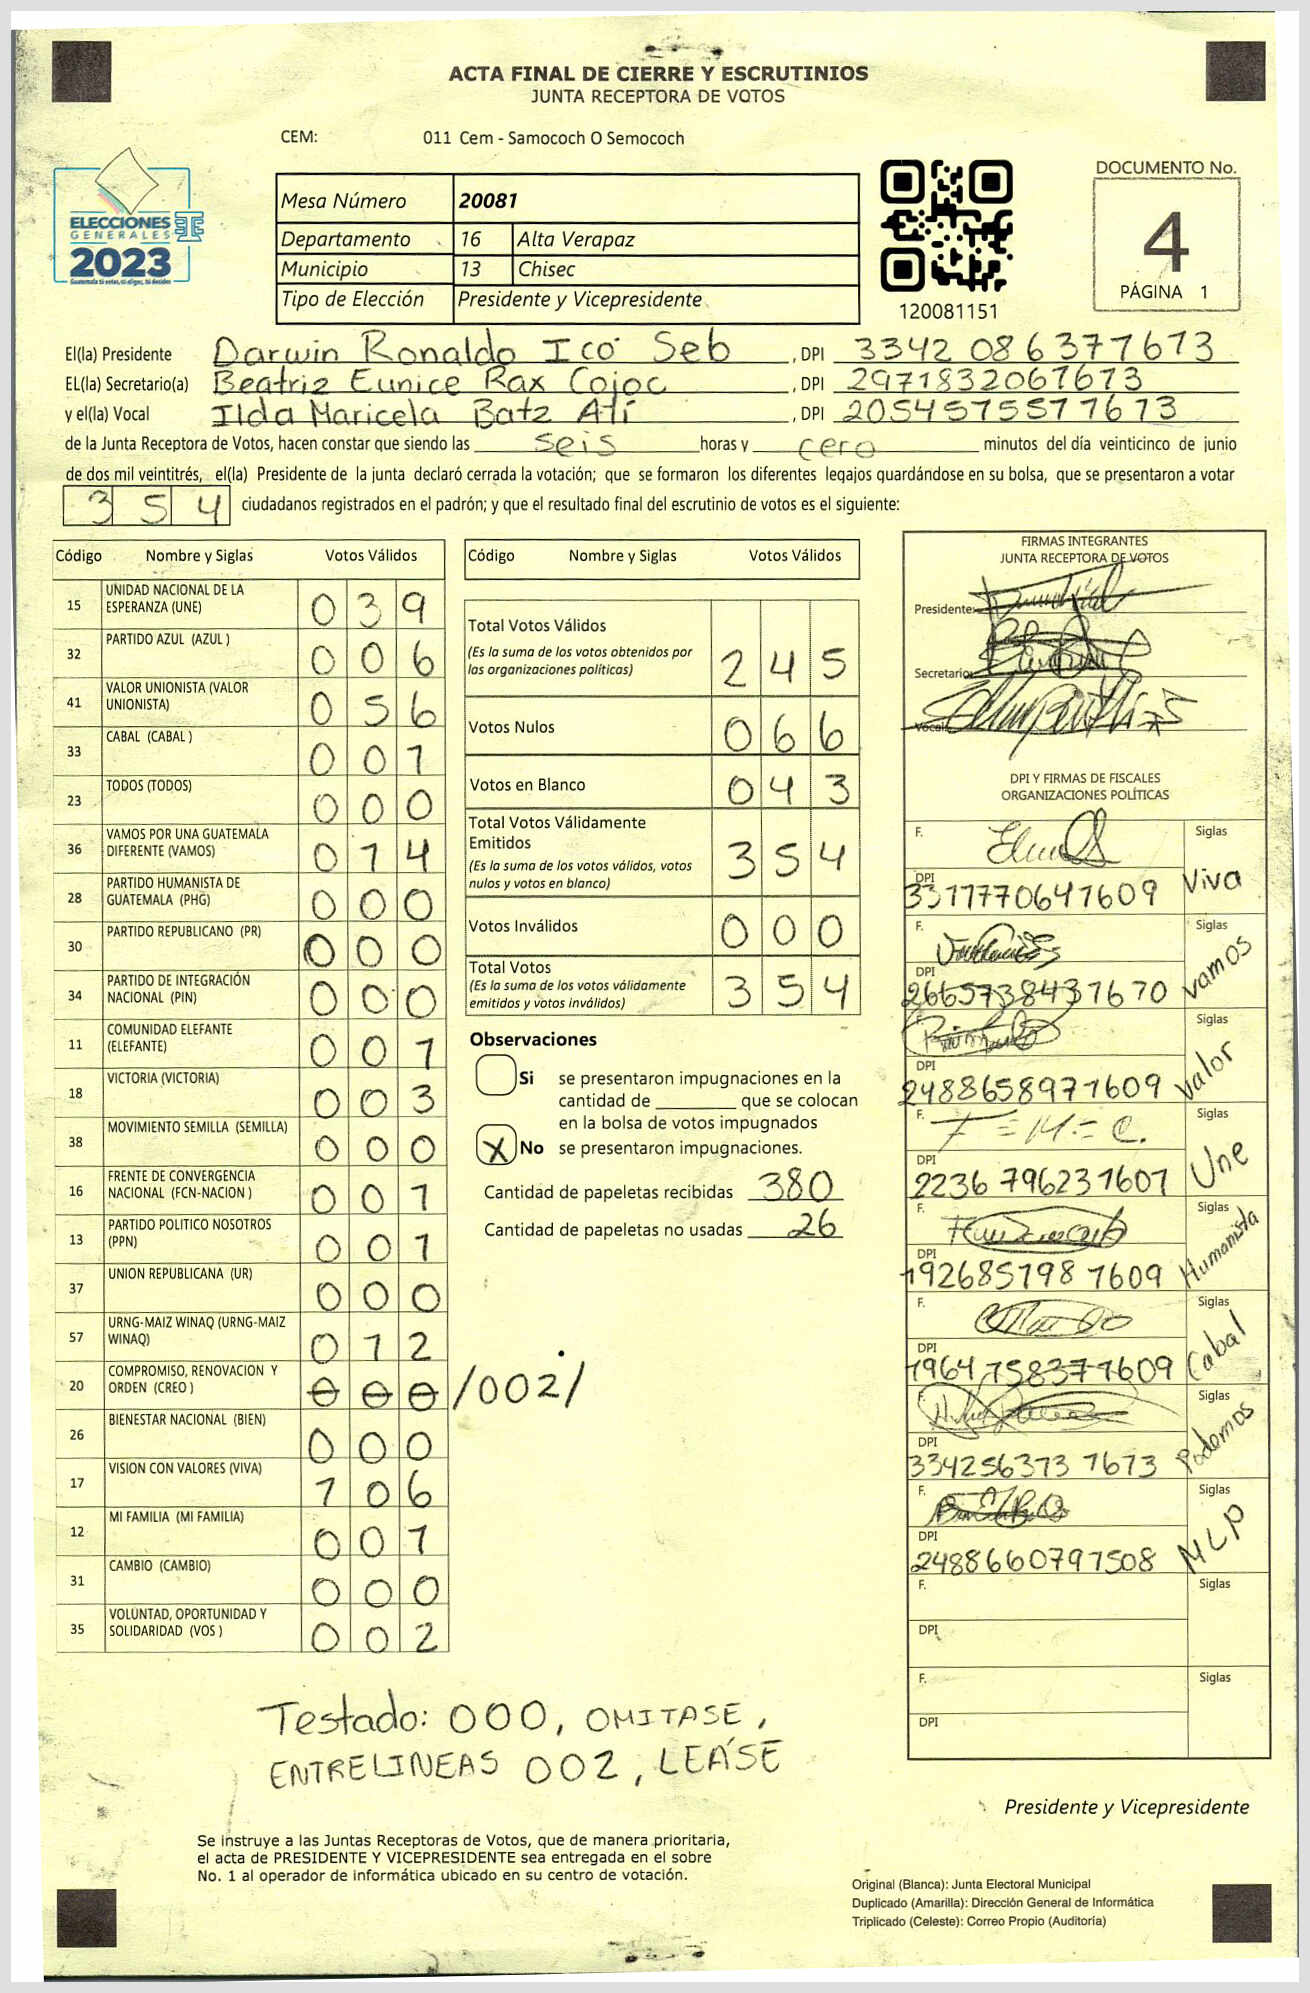 ACTA FINAL DE CIERRE Y ESCRUTINIOS
JUNTA RECEPTORA DE VOTOS
CEM: 011 Cem - Samococh O Semococh
DOCUMENTO No.
4
PÁGINA 1
ELECCIONES
GENERALES
2023
Mesa Número 20081
Departamento 16 Alta Verapaz
Municipio 13 Chisec
Tipo de Elección Presidente y Vicepresidente
120081151
El(la) Presidente Darwin Ronaldo Ico Seb , DPI 3342 086377673
EL(la) Secretario(a) Beatriz Eunice Rax Cojoc , DPI 2971832067673
y el(la) Vocal Ilda Maricela Batz Atí , DPI 2054575577673
de la Junta Receptora de Votos, hacen constar que siendo las seis horas y cero minutos del día veinticinco de junio
de dos mil veintitrés, el(la) Presidente de la junta declaró cerrada la votación; que se formaron los diferentes legajos guardándose en su bolsa, que se presentaron a votar
354 ciudadanos registrados en el padrón; y que el resultado final del escrutinio de votos es el siguiente:
Código Nombre y Siglas Votos Válidos
15 UNIDAD NACIONAL DE LA ESPERANZA (UNE) 039
32 PARTIDO AZUL (AZUL ) 006
41 VALOR UNIONISTA (VALOR UNIONISTA) 056
33 CABAL (CABAL ) 001
23 TODOS (TODOS) 000
36 VAMOS POR UNA GUATEMALA DIFERENTE (VAMOS) 014
28 PARTIDO HUMANISTA DE GUATEMALA (PHG) 000
30 PARTIDO REPUBLICANO (PR) 000
34 PARTIDO DE INTEGRACIÓN NACIONAL (PIN) 000
11 COMUNIDAD ELEFANTE (ELEFANTE) 001
18 VICTORIA (VICTORIA) 003
38 MOVIMIENTO SEMILLA (SEMILLA) 000
16 FRENTE DE CONVERGENCIA NACIONAL (FCN-NACION ) 001
13 PARTIDO POLITICO NOSOTROS (PPN) 001
37 UNION REPUBLICANA (UR) 000
57 URNG-MAIZ WINAQ (URNG-MAIZ WINAQ) 012
20 COMPROMISO, RENOVACION Y ORDEN (CREO ) 000 /002/
26 BIENESTAR NACIONAL (BIEN) 000
17 VISION CON VALORES (VIVA) 106
12 MI FAMILIA (MI FAMILIA) 001
31 CAMBIO (CAMBIO) 000
35 VOLUNTAD, OPORTUNIDAD Y SOLIDARIDAD (VOS ) 002
Código Nombre y Siglas Votos Válidos
Total Votos Válidos 245
(Es la suma de los votos obtenidos por
las organizaciones políticas)
Votos Nulos 066
Votos en Blanco 043
Total Votos Válidamente
Emitidos 354
(Es la suma de los votos válidos, votos
nulos y votos en blanco)
Votos Inválidos 000
Total Votos 354
(Es la suma de los votos válidamente
emitidos y votos inválidos)
Observaciones
Si se presentaron impugnaciones en la
cantidad de ________ que se colocan
en la bolsa de votos impugnados
X No se presentaron impugnaciones.
Cantidad de papeletas recibidas 380
Cantidad de papeletas no usadas 26
FIRMAS INTEGRANTES
JUNTA RECEPTORA DE VOTOS
Presidente:
Secretario:
Vocal:
DPI Y FIRMAS DE FISCALES
ORGANIZACIONES POLÍTICAS
F. Siglas
DPI 3317770641609 Viva
F. Siglas
DPI 2665738431670 Vamos
F. Siglas
DPI 2488658971609 Valor
F. Siglas
DPI 2236 796231607 Une
F. Siglas
DPI 192685198 1609 Humanista
F. Siglas
DPI 1964758371609 Cabal
F. Siglas
DPI 334256373 1673 Podemos
F. Siglas
DPI 2488660791508 MLP
F. Siglas
DPI
F. Siglas
DPI
Testado: 000, OMITASE,
ENTRELINEAS 002, LEASE
Presidente y Vicepresidente
Se instruye a las Juntas Receptoras de Votos, que de manera prioritaria,
el acta de PRESIDENTE Y VICEPRESIDENTE sea entregada en el sobre
No. 1 al operador de informática ubicado en su centro de votación.
Original (Blanca): Junta Electoral Municipal
Duplicado (Amarilla): Dirección General de Informática
Triplicado (Celeste): Correo Propio (Auditoría)